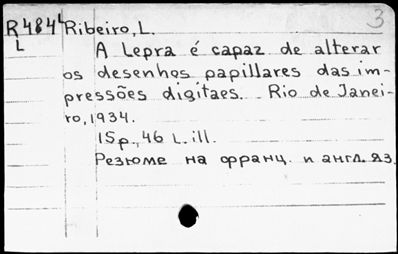 3
R484L Ribeiro, L.
L A lepra é capaz de alterar
os desenhos papillares das im-
pressões digitaes. Rio de Janei-
ro, 1934.
15p., 46 L. ill.
Резюме на франц. и англ. яз.